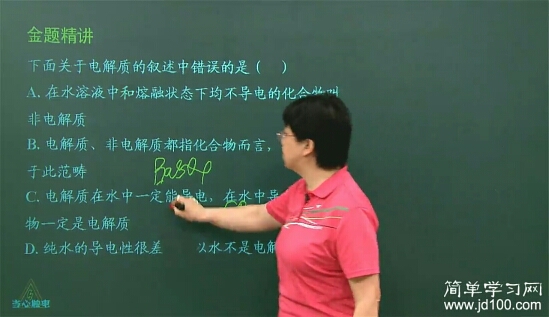 金题精讲
下面关于电解质的叙述中错误的是( )
A. 在水溶液中和熔融状态下均不导电的化合物叫
非电解质
B. 电解质、非电解质都指化合物而言,
于此范畴
BaSO4
C. 电解质在水中一定能导电,在水中导
物一定是电解质
D. 纯水的导电性很差 以水不是电解
简单学习网
www.jd100.com